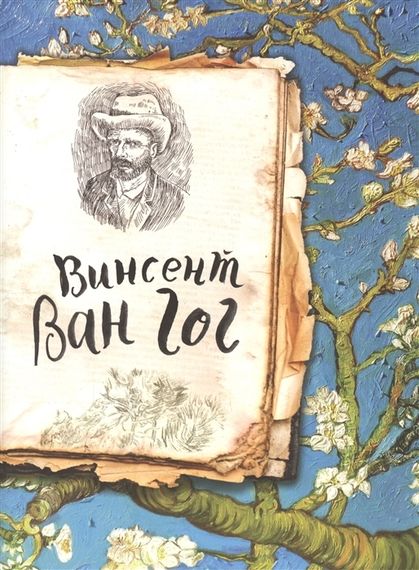 Винсент
Ван Гог